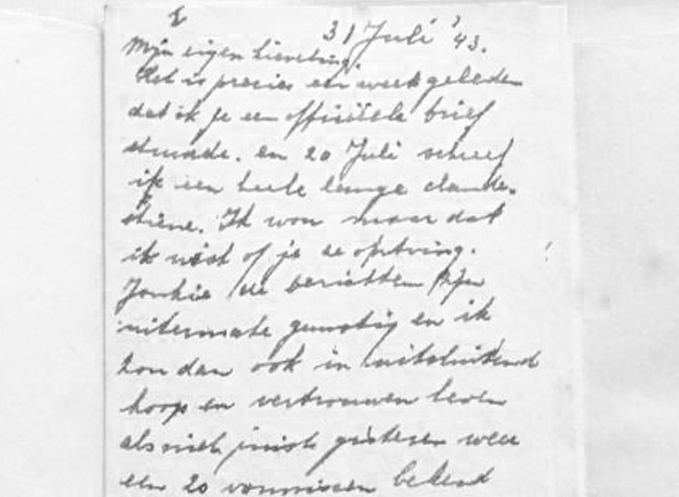 31 Juli '43.
Mijn eigen lieveling,
Het is precies een week geleden
dat ik je een officiëele brief
stuurde. en 20 Juli schreef
ik een heele lange clande-
stiene. Ik wou maar dat
ik wist of je ze ontving.
de berichten zijn
uitermate gunstig en ik
zou dan ook in uitsluitend
hoop en vertrouwen leven
als niet juist gisteren weer
een 20 vonnissen bekend